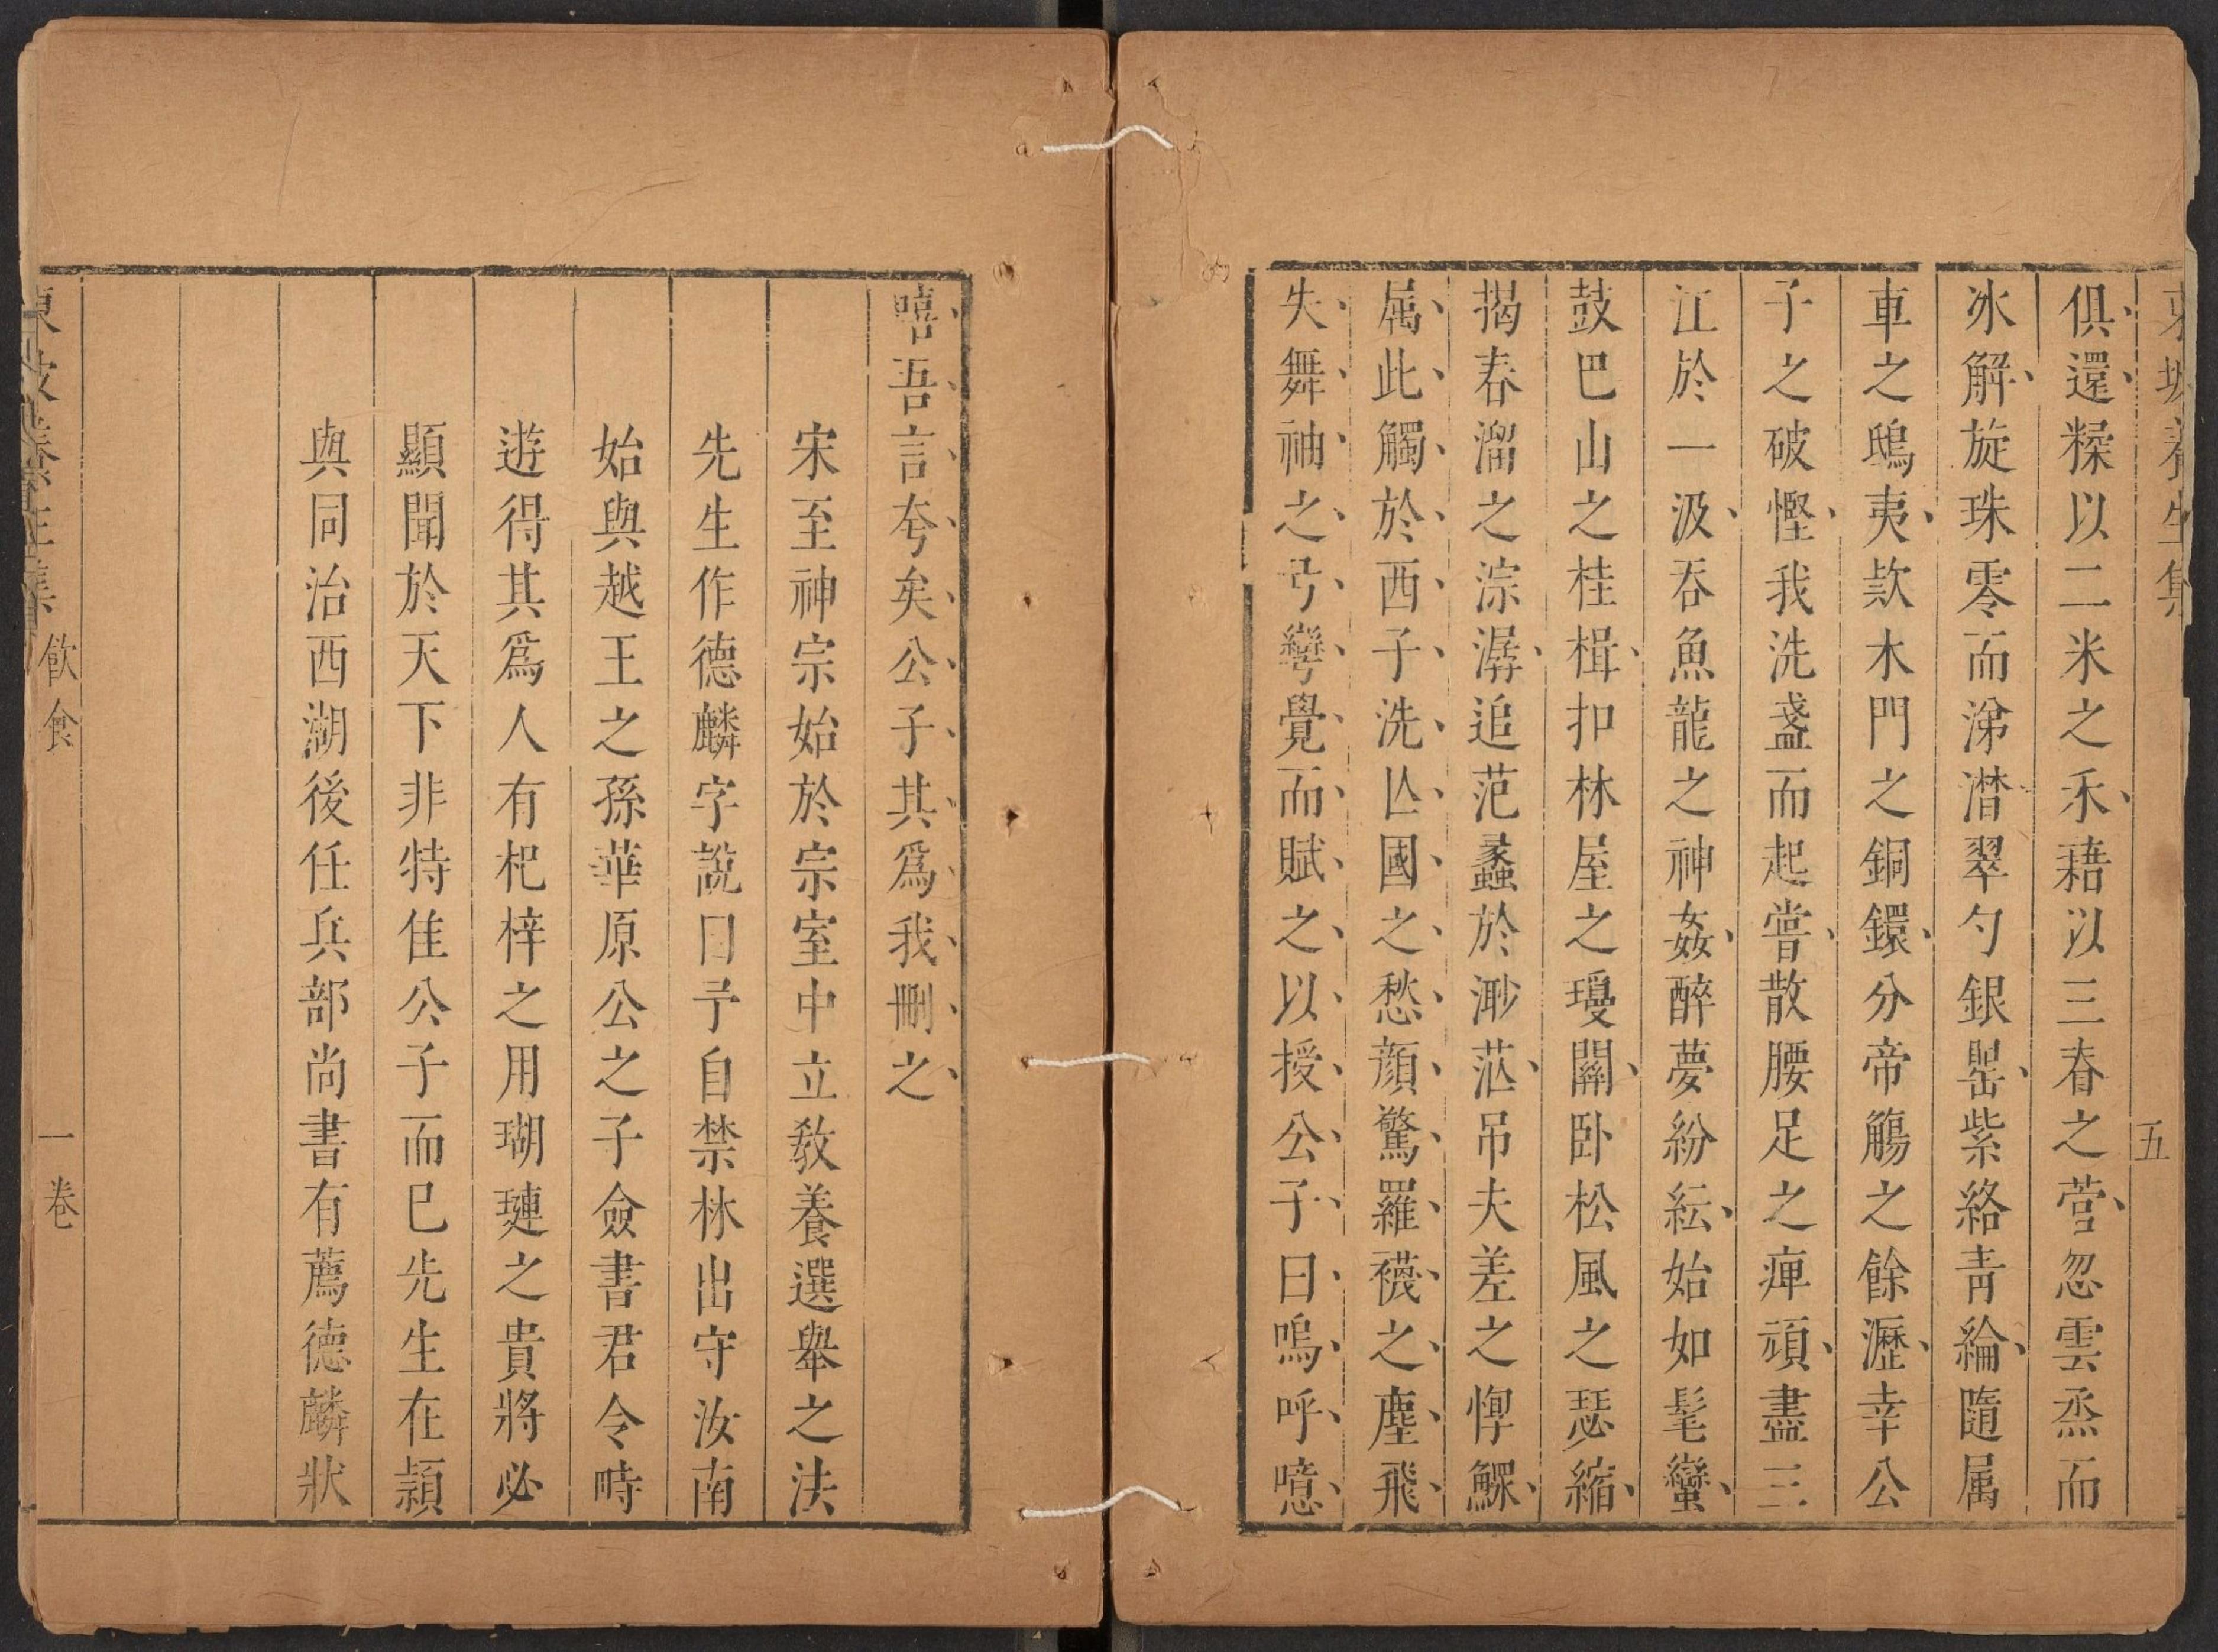 東坡養生集
五
俱還糅以二米之禾藉以三春之菅忽雲烝而
冰解旋珠零而涕潸翠勺銀罌紫絡青綸隨属
車之鴟夷欵木門之銅鐶分帝觴之餘瀝幸公
子之破慳我洗盞而起嘗散腰足之痺頑盡三
江於一汲吞魚龍之神姦醉夢紛紜始如髦蠻
鼓巴山之桂楫扣林屋之瓊關卧松風之瑟縮
揭春溜之淙潺追范蠡於渺茫吊夫差之惸鰥
属此觴於西子洗亾國之愁顏驚羅襪之塵飛
失舞袖之弓彎覺而賦之以授公子曰嗚呼噫
嘻吾言夸矣公子其爲我刪之
宋至神宗始於宗室中立教養選舉之法
先生作德麟字說曰予自禁林出守汝南
始與越王之孫華原公之子僉書君令畤
遊得其爲人有杞梓之用瑚璉之貴將必
顯聞於天下非特佳公子而已先生在潁
與同治西湖後任兵部尚書有薦德麟狀
東坡養生集
飲食
一卷